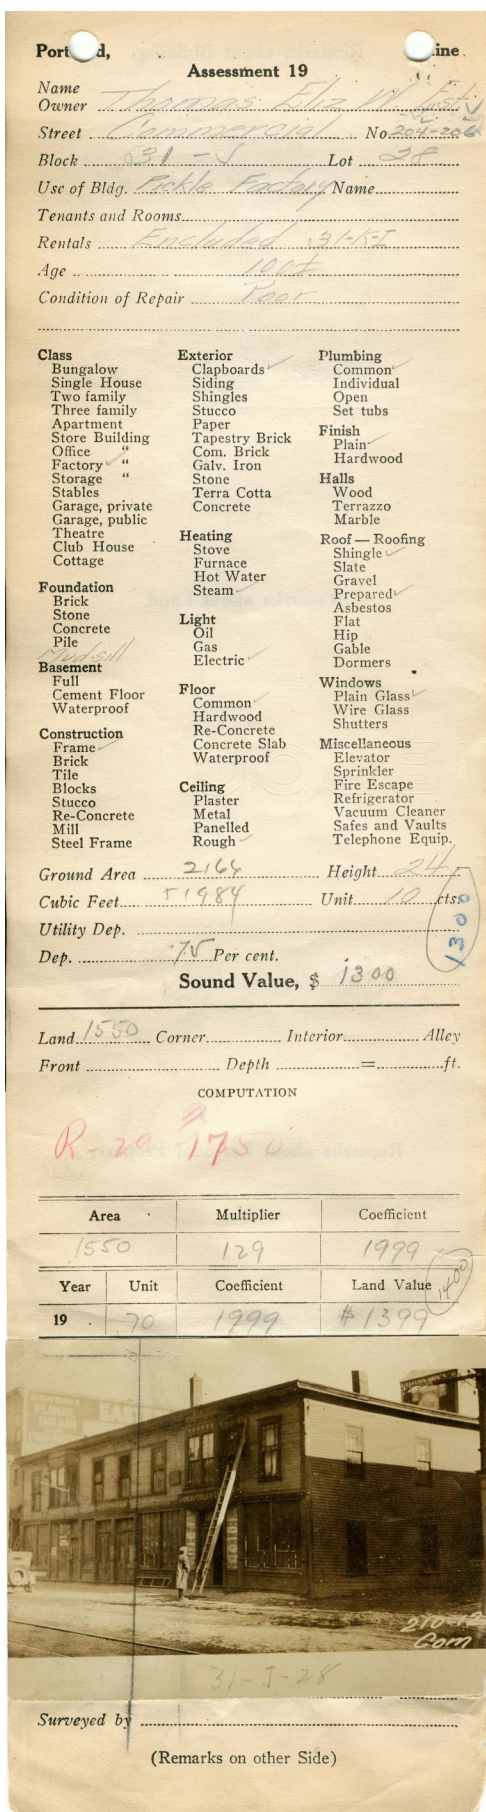 Port d, ine
Assessment 19
Name
Owner Thomas Eliz W. Est.
Street Commercial No. 204-206
Block 31-J Lot 28
Use of Bldg. Pickle Factory Name
Tenants and Rooms
Rentals Encluded 31-K-I
Age 100±
Condition of Repair Poor
Class
Bungalow
Single House
Two family
Three family
Apartment
Store Building
Office "
Factory ✓ "
Storage "
Stables
Garage, private
Garage, public
Theatre
Club House
Cottage
Foundation
Brick
Stone
Concrete
Pile
Mudsill
Basement
Full
Cement Floor
Waterproof
Construction
Frame ✓
Brick
Tile
Blocks
Stucco
Re-Concrete
Mill
Steel Frame
Exterior
Clapboards ✓
Siding
Shingles
Stucco
Paper
Tapestry Brick
Com. Brick
Galv. Iron
Stone
Terra Cotta
Concrete
Heating
Stove
Furnace
Hot Water
Steam ✓
Light
Oil
Gas
Electric ✓
Floor
Common ✓
Hardwood
Re-Concrete
Concrete Slab
Waterproof
Ceiling
Plaster
Metal
Panelled
Rough ✓
Plumbing
Common ✓
Individual
Open
Set tubs
Finish
Plain ✓
Hardwood
Halls
Wood
Terrazzo
Marble
Roof — Roofing
Shingle ✓
Slate
Gravel
Prepared ✓
Asbestos
Flat
Hip
Gable
Dormers
Windows
Plain Glass ✓
Wire Glass
Shutters
Miscellaneous
Elevator
Sprinkler
Fire Escape
Refrigerator
Vacuum Cleaner
Safes and Vaults
Telephone Equip.
Ground Area 2166 Height 24
Cubic Feet 51984 Unit 10 cts.
1300
Utility Dep.
Dep. 75 Per cent.
Sound Value, $ 1300
Land 1550 Corner Interior Alley
Front Depth = ft.
COMPUTATION
R-29 1750
Area Multiplier Coefficient
1550 129 1999
Year Unit Coefficient Land Value
1400
19 70 1999 $1399
Com
31-J-28
Surveyed by
(Remarks on other Side)